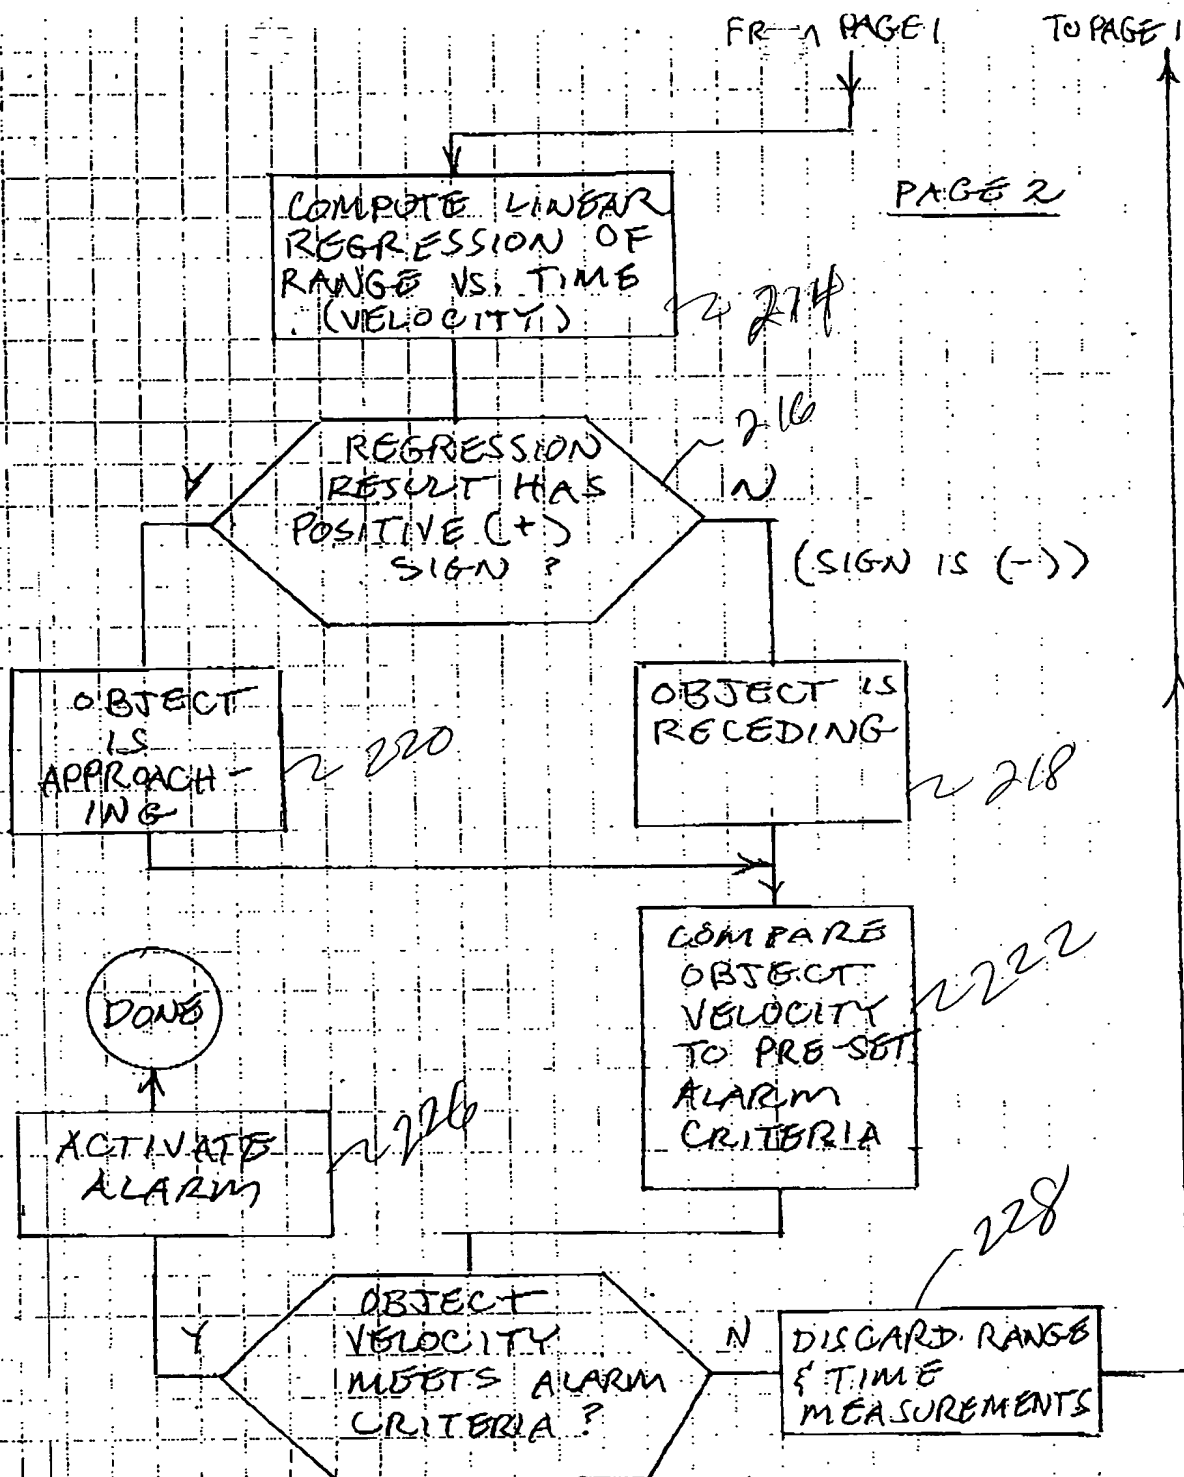 PAGE 1
TO PAGE 1
PAGE 2
COMPUTE LINEAR
REGRESSION OF
RANGE VS. TIME
(VELOCITY)
214
REGRESSION
RESULT HAS
POSITIVE (+)
SIGN ?
216
Y
N
(SIGN IS (-))
OBJECT
IS
APPROACH-
ING
220
OBJECT IS
RECEDING
218
COMPARE
OBJECT
VELOCITY
TO PRE-SET
ALARM
CRITERIA
222
DONE
ACTIVATE
ALARM
226
228
OBJECT
VELOCITY
MEETS ALARM
CRITERIA ?
Y
N
DISCARD RANGE
& TIME
MEASUREMENTS